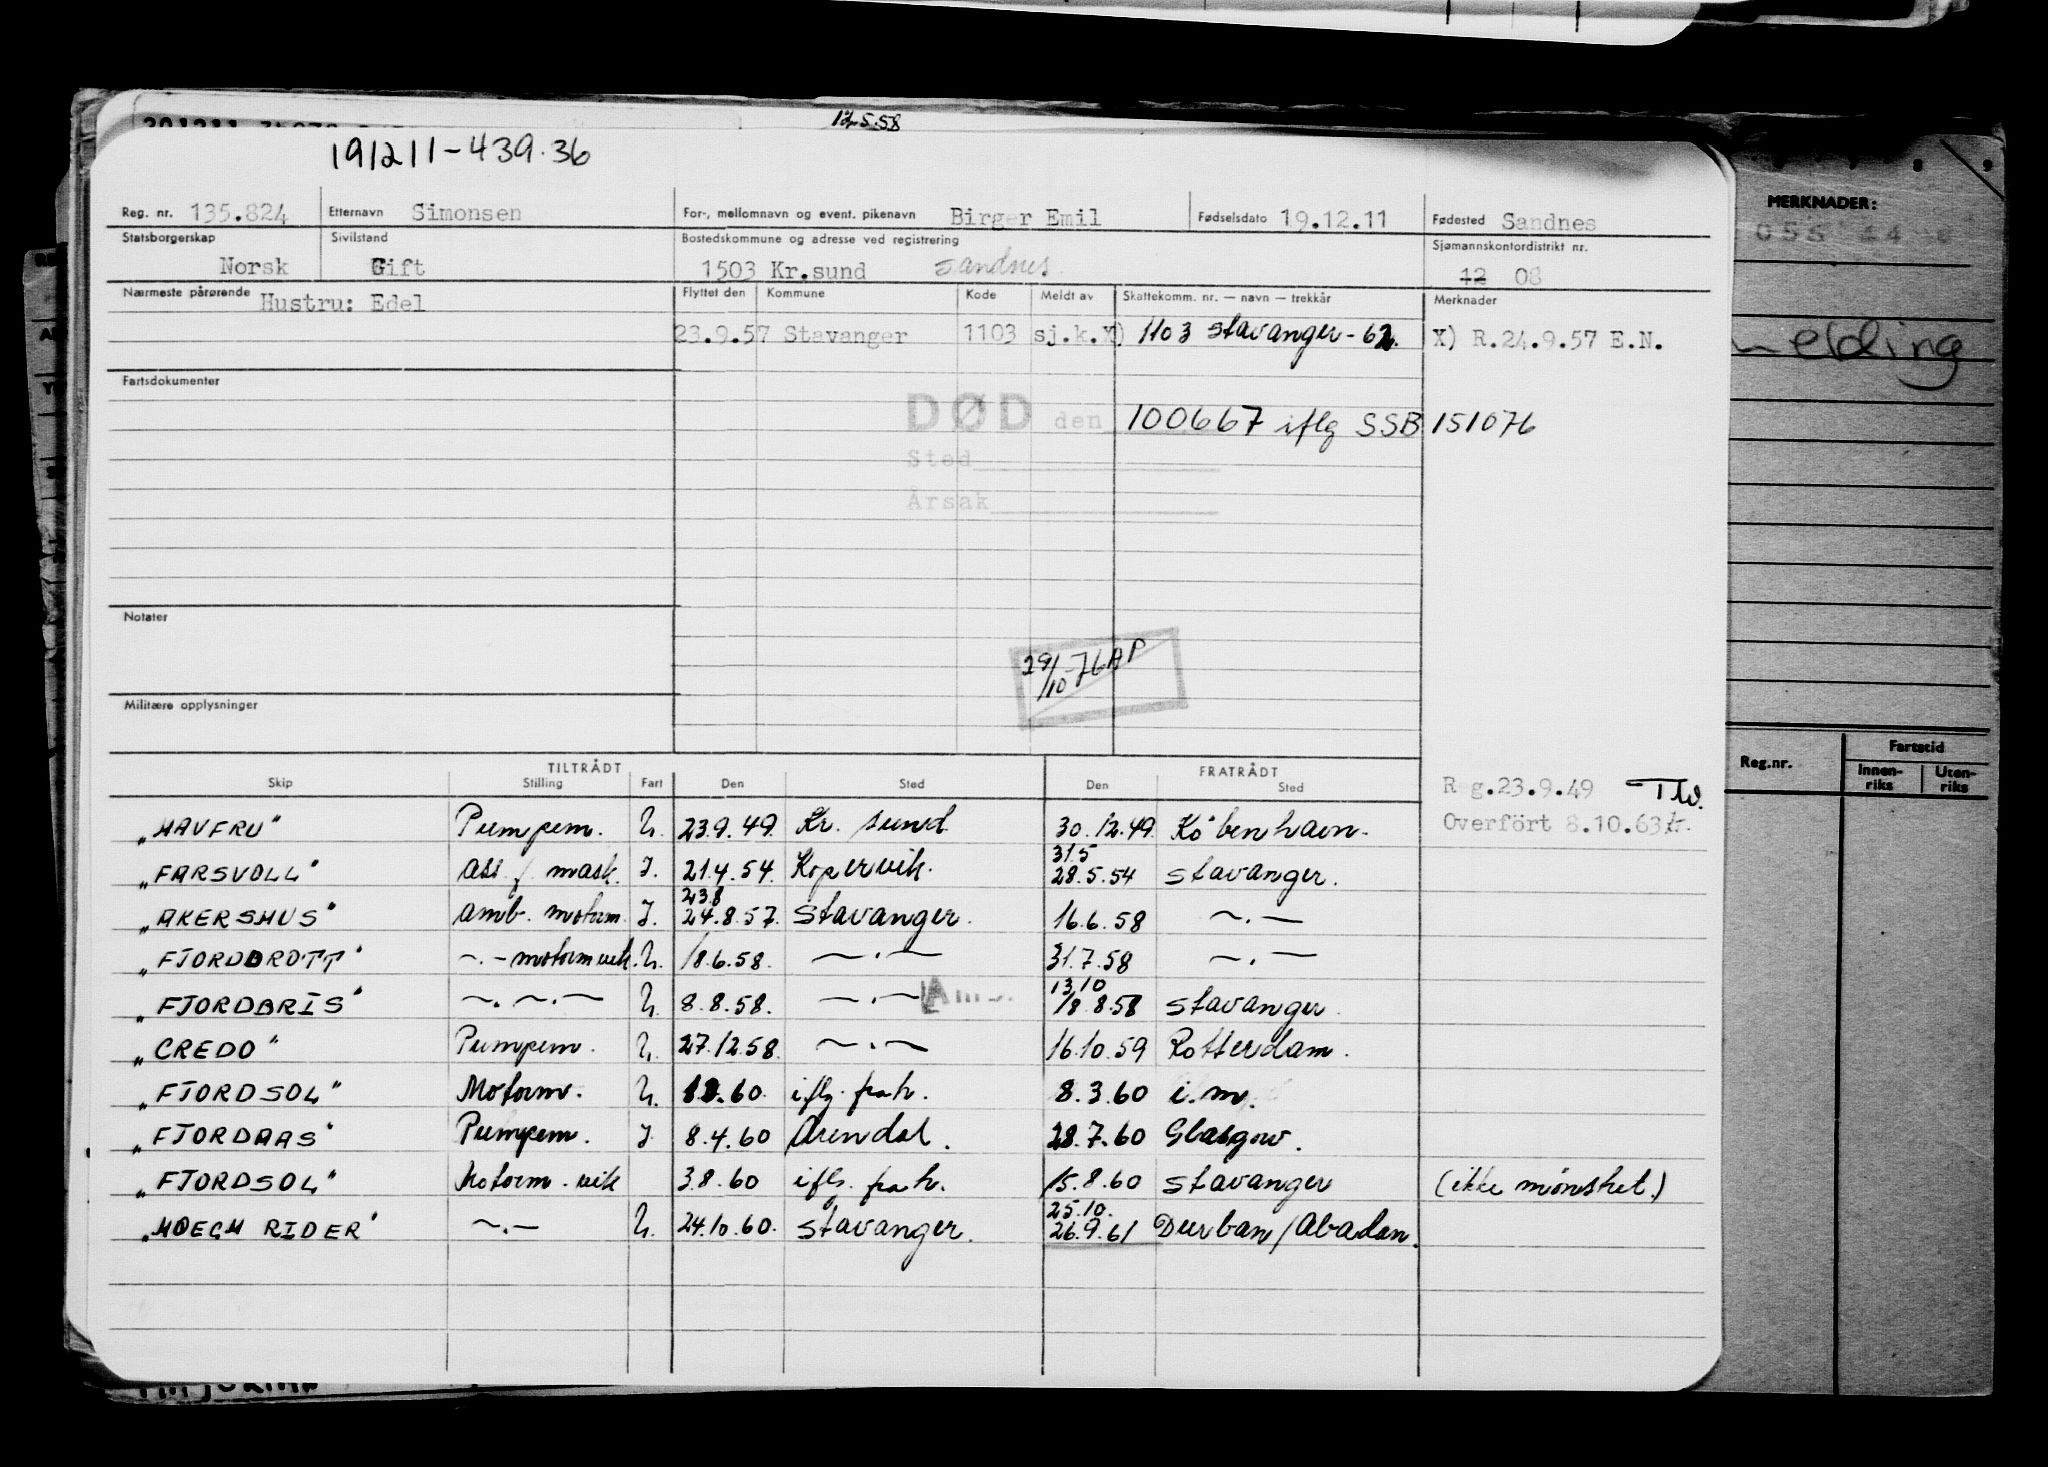 12.5.58
191211-439.36
Reg. nr. 135.824 Etternavn Simonsen For-, mellomnavn og event. pikenavn Birger Emil Fødselsdato 19.12.11 Fødested Sandnes
Statsborgerskap Norsk Sivilstand Gift Bostedskommune og adresse ved registrering 1503 Kr.sund Sandnes Sjømannskontordistrikt nr. 12 08
Nærmeste pårørende Hustru: Edel Flyttet den Kommune Kode Meldt av Skattekomm. nr. — navn — trekkår Merknader
23.9.57 Stavanger 1103 sj.k.X) 1103 Stavanger-62. X) R.24.9.57 E.N.
Fartsdokumenter
DØD den 100667 iflg SSB 151076
Sted
Årsak
Notater
29/10-76 AP
Militære opplysninger
TILTRÅDT FRATRÅDT
Skip Stilling Fart Den Sted Den Sted
Reg.23.9.49
Overfört 8.10.63
"HAVFRU" Pumpem. U. 23.9.49. Kr. sund 30.12.49. København.
31.5
"FARSVOLL" ass. f. mask. I. 21.4.54. Kopervik. 28.5.54 Stavanger.
23.8
"AKERSHUS" amb. motorm. I. 24.8.57. Stavanger. 16.6.58 ~.—
"FJORDDROTT" ~.— motorm.vik. U. 18.6.58. ~.— 31.7.58 ~.—
13.10
"FJORDBRIS" ~.~.— U. 8.8.58. ~.— 18.8.58 Stavanger
"CREDO" Pumpem. U. 27.12.58. ~.— 16.10.59 Rotterdam.
"FJORDSOL" Motorm. U. .60. iflg. frah. 8.3.60 i.m.
"FJORDAAS" Pumpem. I 8.4.60 Arendal. 28.7.60 Glasgow.
"FJORDSOL" Motorm. vik 3.8.60 iflg. frah. 15.8.60 Stavanger (ikke mønstret.)
25.10.
"HØEGH RIDER" ~.— U. 24.10.60. Stavanger. 26.9.61 Durban/Abadan.
7 8 9
MERKNADER:
055 44
elding
Reg.nr. Fartstid
Innen-riks Uten-riks